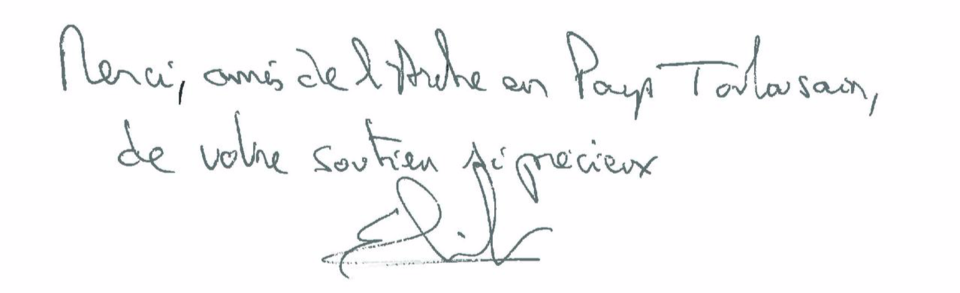 Merci, amis de l'Arche en Pays Toulousain,
de votre soutien si précieux